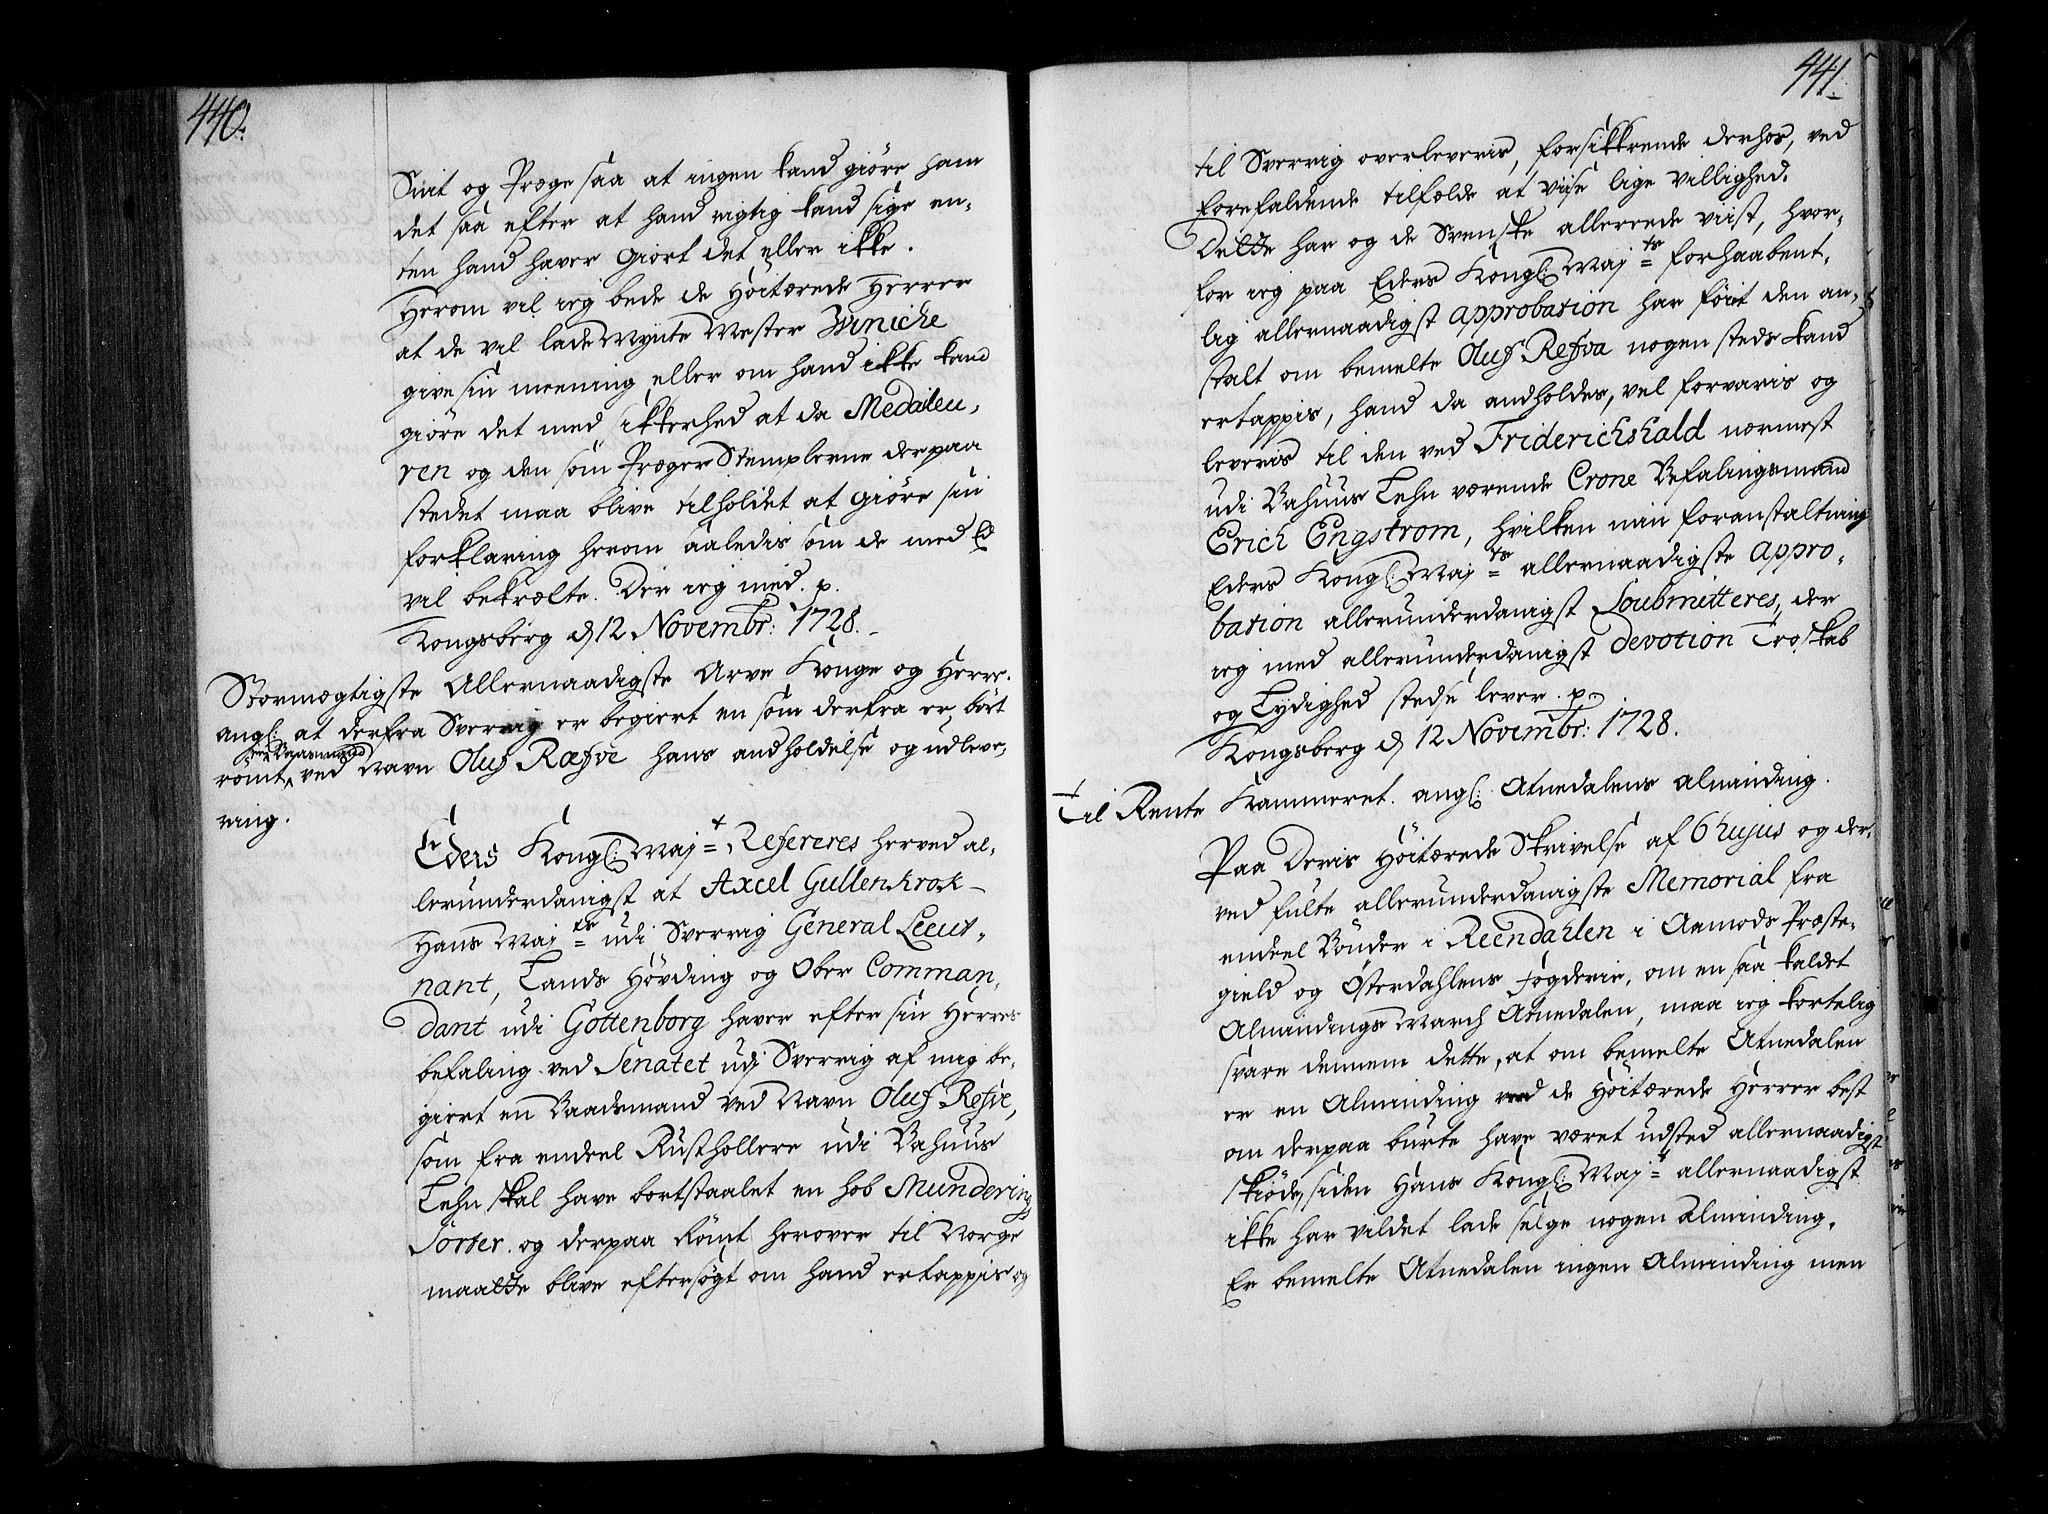 440.
Snit og Præge saa at ingen kand giöre ham
det saa efter at hand rigtig kand sige en-
ten hand haver giort det eller ikke.
Herom vil ieg bede de Höitærede Herrer
at de vil lade Mynte Mester
give sin meening, eller om hand ikke kand
giöre det med sikkerhed at da Medalleu-
ren og den som Præger Stemplerne derpaa
stedet maa blive tilholdet at giöre sin
forklaring herom saaledis som de med Ed
vil bekræfte. Der ieg med. p.
Kongsberg d 12 Novembr: 1728.
Stormægtigste Allernaadigste Arve Konge og Herre.
ang: at derfra Sverrig er begiert en som derfra er bort
römt, een Baadsmand ved Navn Oluf Ræfve hans andholdelse og udleve-
ring.
Eders Kongl: Maj:t Refereres herved al-
lerunderdanigst at Axcel Gullenkrok
Hans Maj:ts udi Sverrig General Leeut-
nant, Lands Hövding og Ober Comman-
dant udi Gottenborg haver efter sin Herres
befaling ved Senatet udj Sverrig af mig be-
giert en Baadsmand ved Navn Oluf Refve,
som fra endeel Rusthollere udi Bahuus
Lehn skal have bortstaalet en hob Mundering
Sorter. og derpaa Römt herover til Norge
maatte blive eftersögt om hand ertappis og
441.
til Sverrig overleveris, forsikkrende derhos, ved
forefaldende tilfælde at viise lige villighed.
Dette har og de Svenske allerede viist, hvor-
for ieg paa Eders Kongl: Maj:ts forhaabent-
lig allernaadigst approbation har föiet den an-
stalt om bemelte Oluf Refva nogen steds kand
ertappis, hand da andholdes, vel forvaris og
leveris til den ved Friderichshald nærmest
udi Bahuus Lehn værende Crone Befalingsmand
Erich Engstrom, hvilken min foranstaltning
Eders Kongl: Maj:ts allernaadigste appro-
bation allerunderdanigst Soubmitteres, der
ieg med allerunderdanigst devotion Troskab
og Lydighed stedse lever. p.
Kongsberg d 12 Novembr: 1728.
Til Rente Kammeret. ang: Atnedalens Alminding.
Paa Deris Höitærede Skrivelse af 6 hujus og der-
ved fulte allerunderdanigste Memorial fra
endeel Bönder i Reendahlen i Aamods Præste-
gield og Österdahlens Fogderie, om en saa kaldet
Almindings March Atnedalen, maa ieg kortelig
svare dennem dette, at om bemelte Atnedalen
er en Alminding veed de Höitærede Herrer best
om derpaa burte have været udsted allernaadigst
skiöde, siden Hans Kongl: Maj:t allernaadigst
ikke har vildet lade selge nogen Alminding.
Er bemelte Atnedalen ingen Alminding men